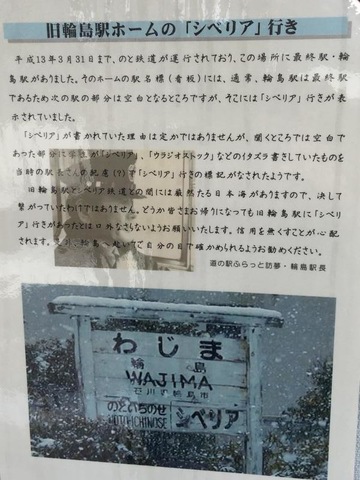 旧輪島駅ホームの「シベリア」行き
平成13年3月31日まで、のと鉄道が運行されており、この場所に最終駅・輪
島駅がありました。そのホームの駅名標(看板)には、通常、輪島駅は最終駅
であるため次の駅の部分は空白となるところですが、そこには「シベリア」行きが表
示されていました。
「シベリア」が書かれていた理由は定かではありませんが、聞くところでは空白で
あった部分に学生が「シベリア」、「ウラジオストック」などのイタズラ書きしていたものを
当時の駅長さんの配慮(?)で「シベリア」行きの標記がなされたようです。
旧輪島駅とシベリア鉄道との間には厳然たる日本海がありますので、決して
繋がっていたわけではありません。どうか皆さまお帰りになっても旧輪島駅に「シベリ
ア」行きがあったとは口外なさらないようお願いいたします。信用を無くすことが心配
されます。
輪島へ赴いてご自分の目で確かめられるようお勧めください。
道の駅ふらっと訪夢・輪島駅長
わじま
輪島
WAJIMA
石川の輪島市
のといちのせ
NOTOICHINOSE
シベリア